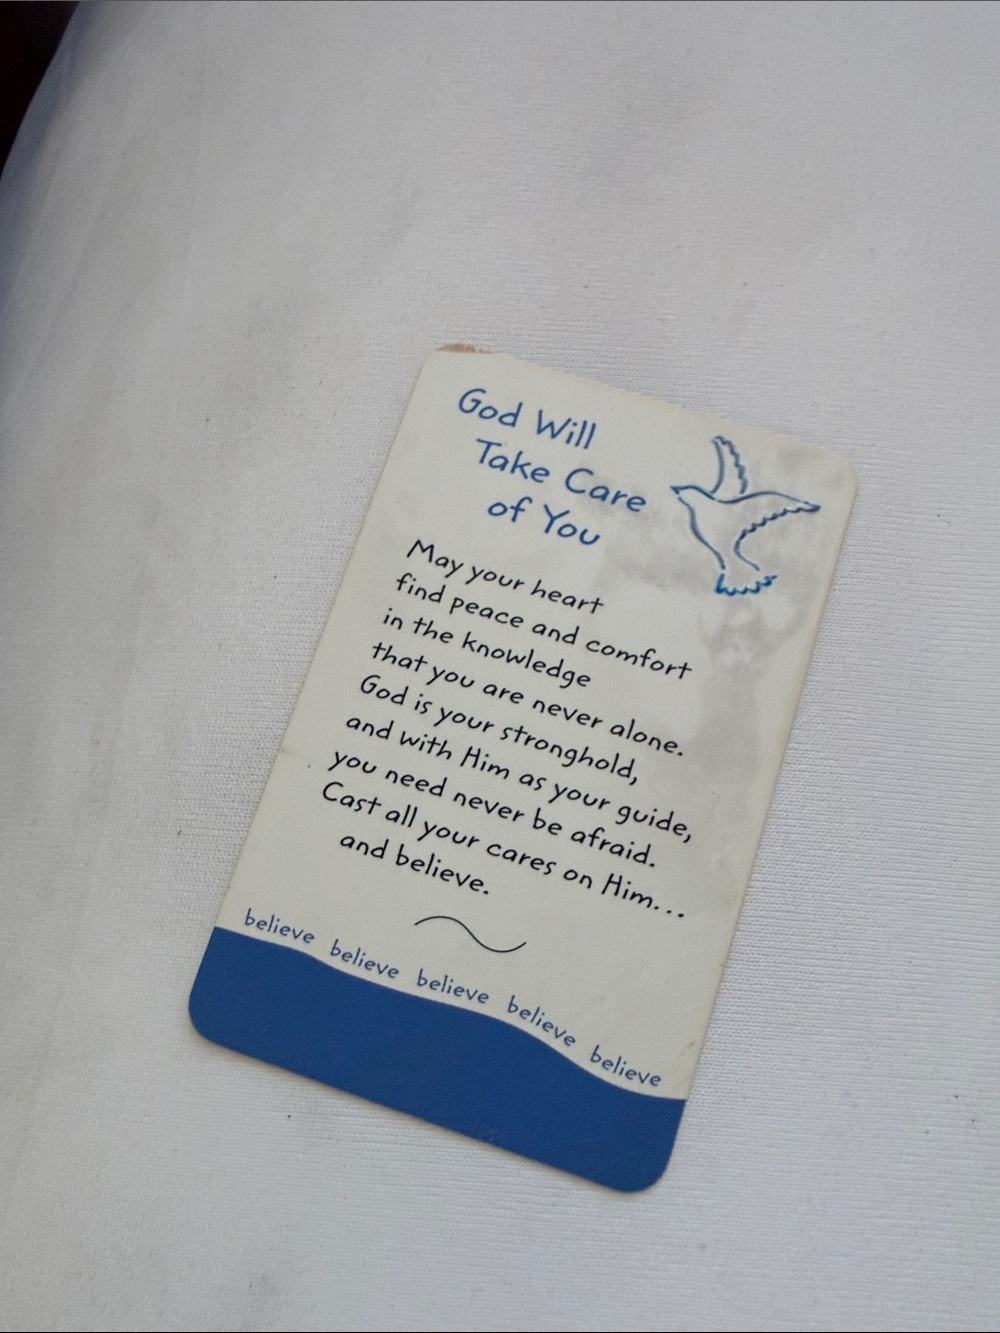 God Will
Take Care
of You
May your heart
find peace and comfort
in the knowledge
that you are never alone.
God is your stronghold,
and with Him as your guide,
you need never be afraid.
Cast all your cares on Him...
and believe.
believe believe believe believe believe